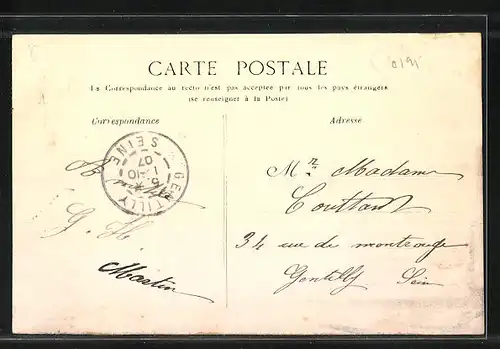 0191
CARTE POSTALE
La Correspondance au recto n'est pas acceptée par tous les pays étrangers
(se renseigner à la Poste)
Correspondance
Adresse
GENTILLY SEINE
07
Mr Madame
Couttant
34 rue de montrouge
Gentilly Sein
G. H.
Martin